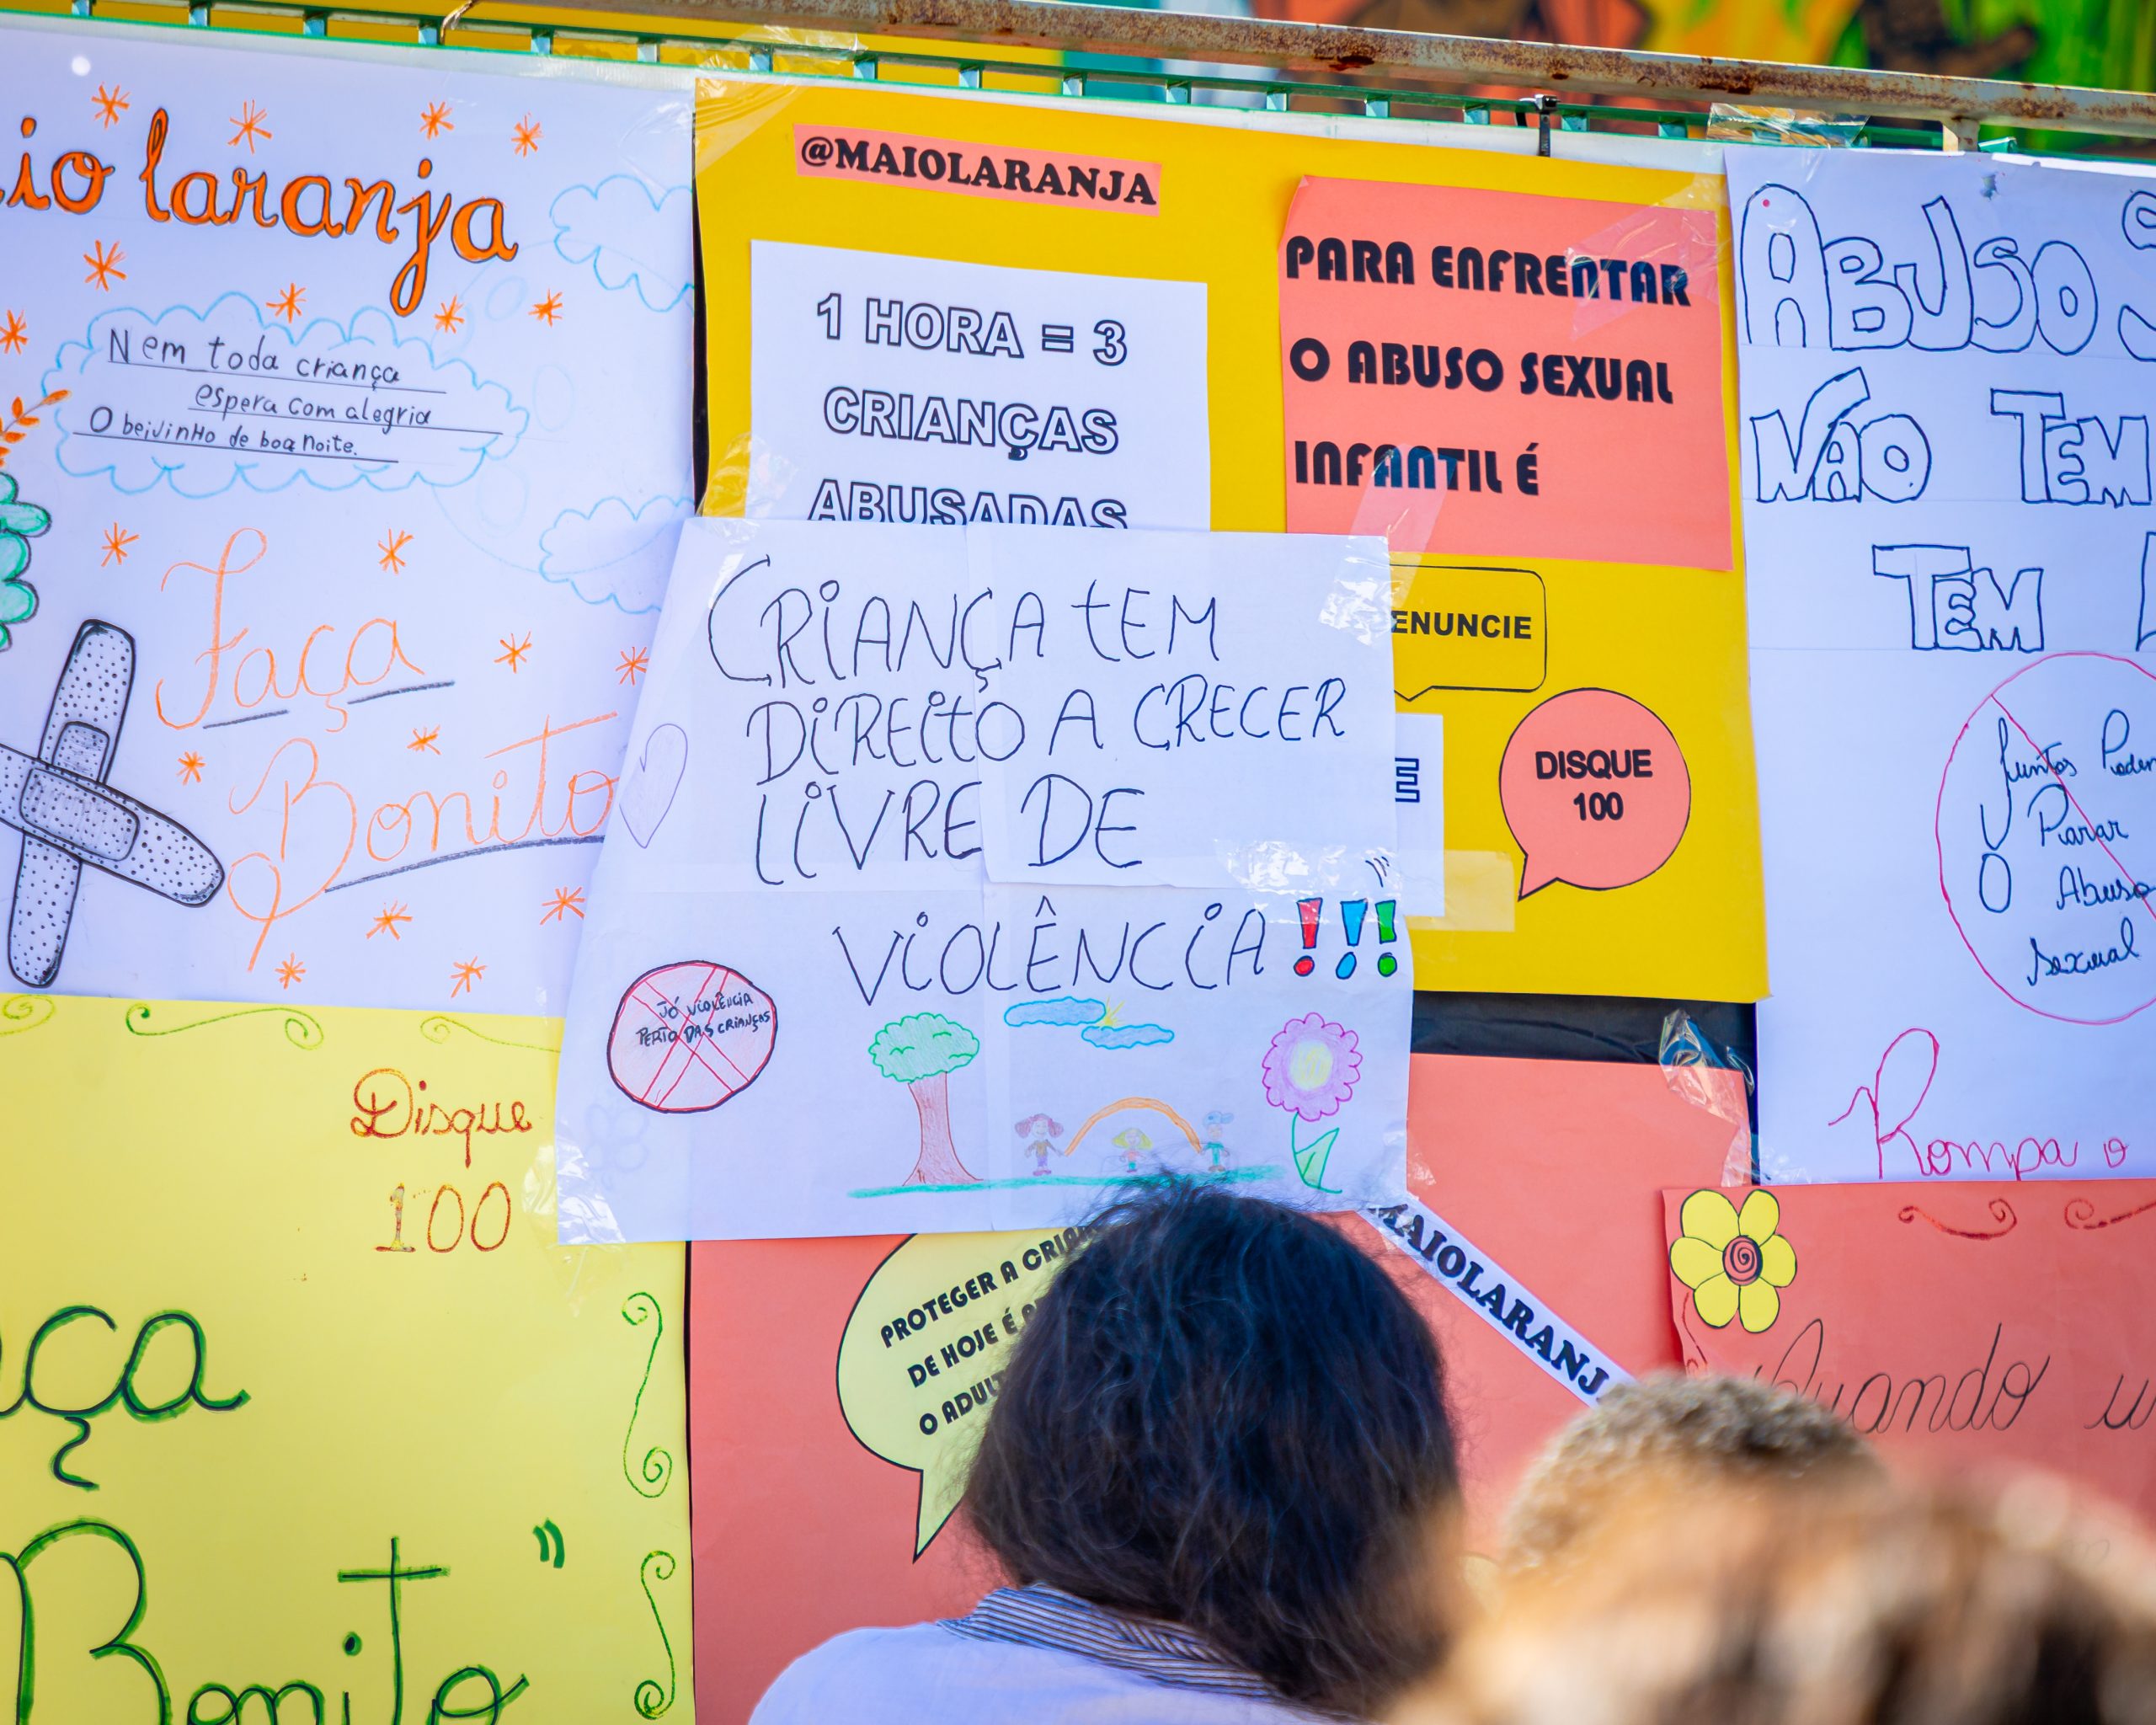 io laranja
Nem toda criança
espera com alegria
O beijinho de boa noite.
Faça
Bonito
@MAIOLARANJA
1 HORA = 3
CRIANÇAS
ABUSADAS
PARA ENFRENTAR
O ABUSO SEXUAL
INFANTIL É
ENUNCIE
E
DISQUE
100
CRIANÇA TEM
DIREITO A CRECER
LIVRE DE
VIOLÊNCIA!!!
VIOLÊNCIA
PERTO DAS CRIANÇAS
ABUSO S
NÃO TEM
TEM
Juntos Podem
Parar
O Abuso
Sexual
Rompa o
Disque
100
ça
Bonito"
PROTEGER A CRIAN
DE HOJE É
O ADUL
MAIOLARANJ
Quando u